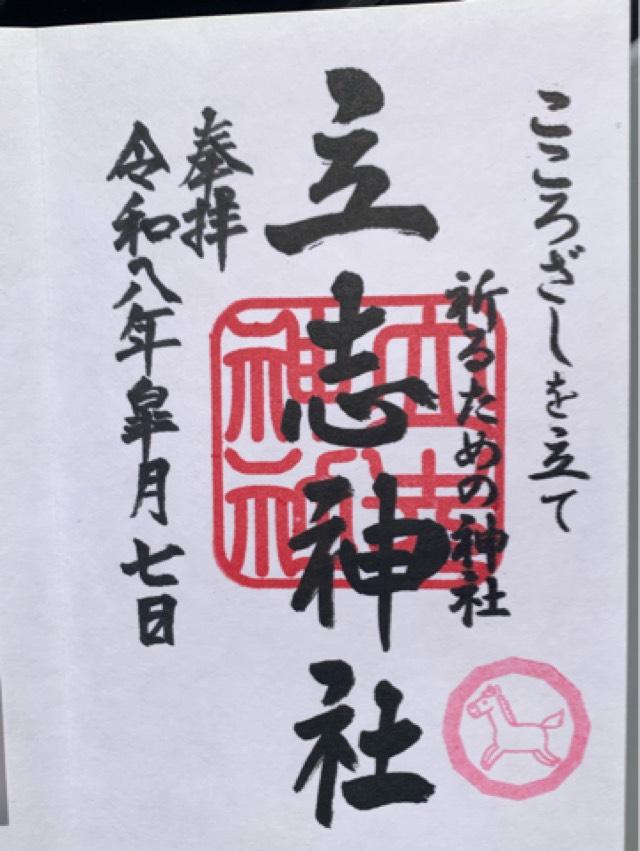 こころざしを立て
祈るための神社
立志神社
奉拝
令和八年皐月七日
立志神社